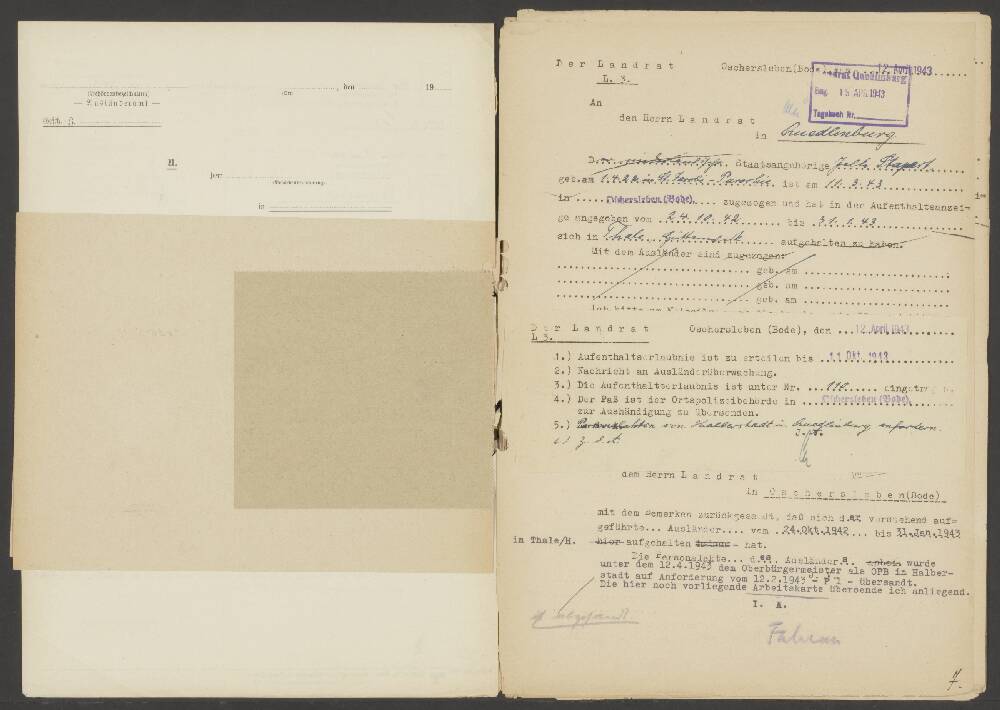 (Behördenbezeichnung)
— Ausländeramt —
den 19
II.
Herrn
in
Der Landrat Oschersleben(Bode), 12. April 1943
L. 3.
Landrat Quedlinburg
Eing. 15 APR. 1943
Tagebuch Nr.
An
den Herrn Landrat
in Quedlinburg
Staatsangehörige
geb.am 1.4.22 in ist am 11.3.43
in Oschersleben (Bode). zugezogen und hat in der Aufenthaltsanzei-
ge angegeben vom 24.10.42 bis 31.1.43
sich in Thale aufgehalten zu haben.
Mit dem Ausländer sind zugezogen:
geb. am
geb. am
geb. am
Der Landrat Oschersleben (Bode), den 12. April 1943
L 3.
1.) Aufenthaltserlaubnis ist zu erteilen bis 11. Okt. 1943
2.) Nachricht an Ausländerüberwachung.
3.) Die Aufenthaltserlaubnis ist unter Nr. 110 eingetragen.
4.) Der Paß ist der Ortspolizeibehörde in Oschersleben (Bode).
zur Aushändigung zu übersenden.
5.) Personalakten von Halberstadt in Quedlinburg anfordern.
z. d. A.
dem Herrn Landrat
in Oschersleben(Bode)
mit dem Bemerken zurückgesandt, daß sich der vorstehend auf=
geführte... Ausländer.... vom 24.Okt.1942 bis 31.Jan.1943
in Thale/H. hier aufgehalten hat.
Die Personalakte... des Ausländers.. wurde
unter dem 12.4.1943 dem Oberbürgermeister als OPB in Halber-
stadt auf Anforderung vom 12.2.1943 - P 1 - übersandt.
Die hier noch vorliegende Arbeitskarte übersende ich anliegend.
I. A.
7.